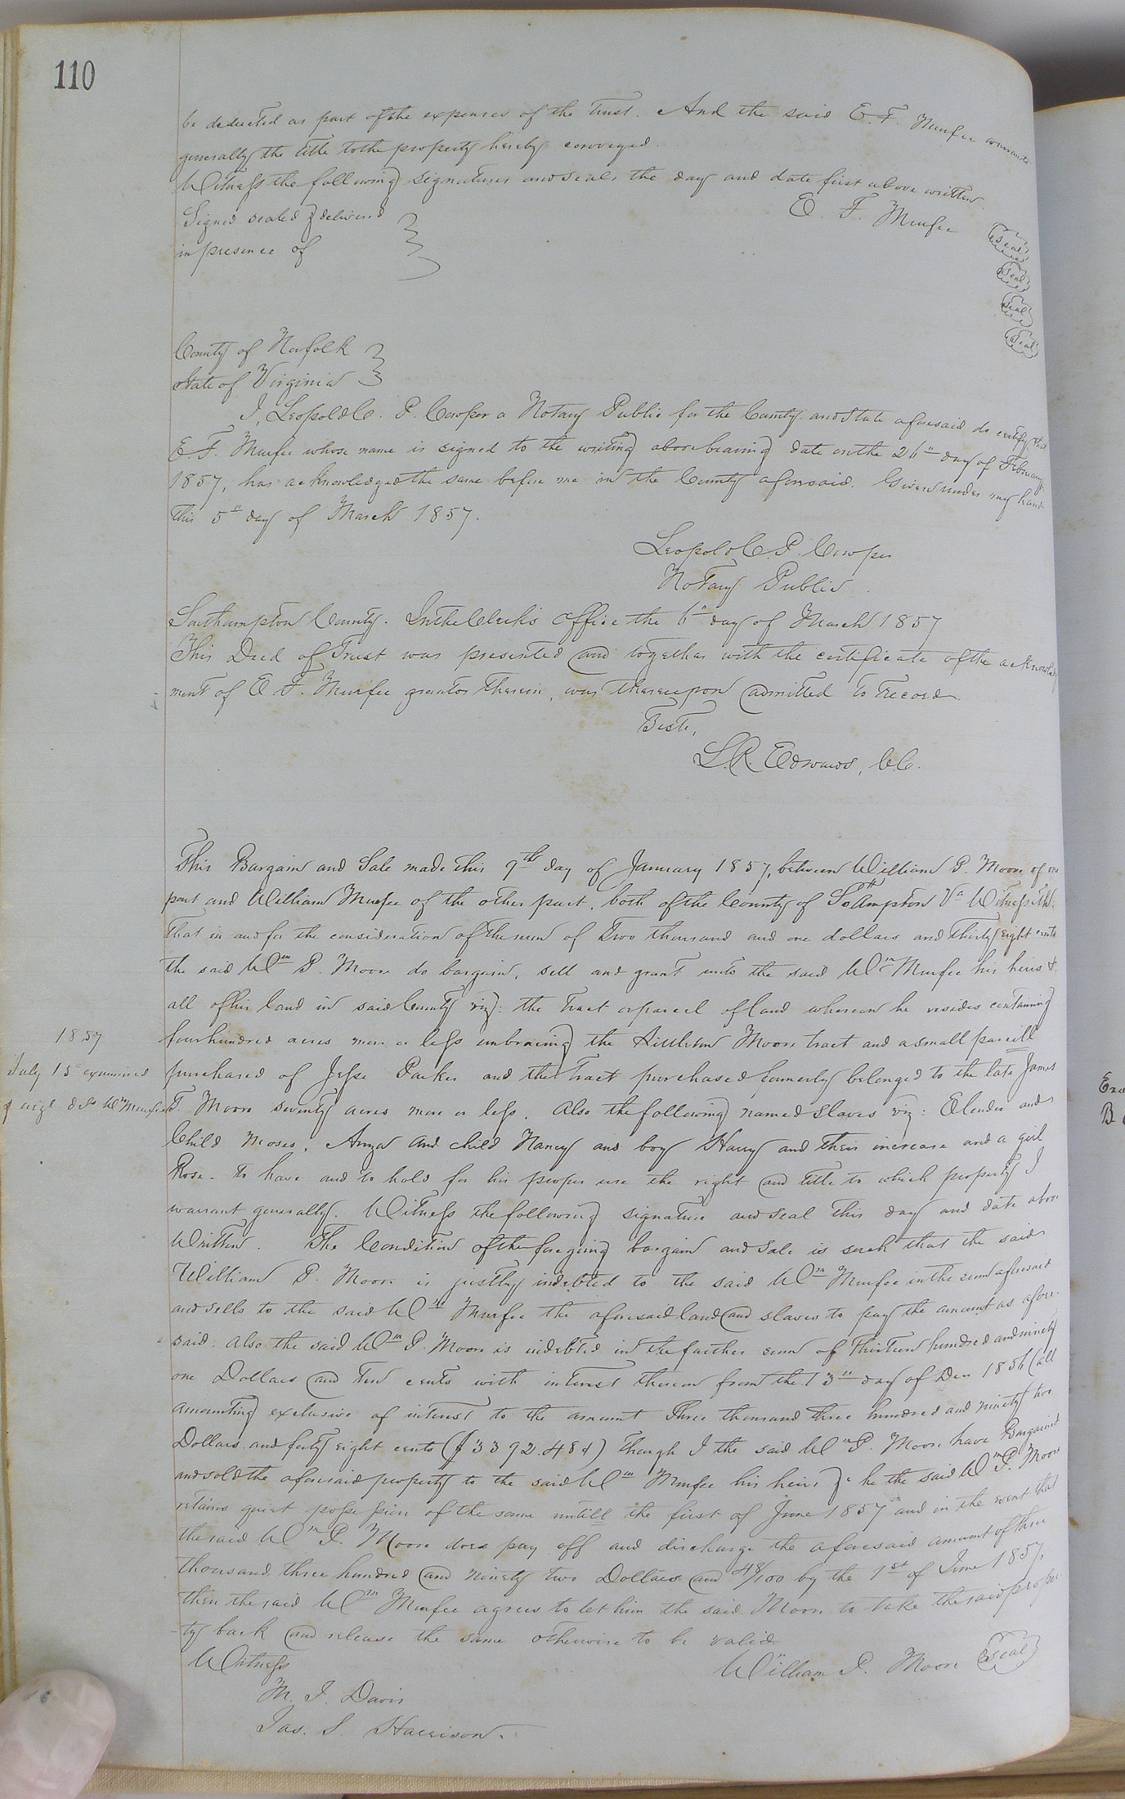 110
be deducted as part of the expenses of the trust. And the said E. F. Murfee warrants
generally the title to the property hereby conveyed.
Witness the following signatures and seals the day and date first above written
Signed sealed & delivered
in presence of
E. F. Murfee seal
seal
seal
seal
County of Norfolk
State of Virginia
I, Leopold C. P. Cowper a Notary Public for the County and State aforesaid do certify that
E. F. Murfee whose name is signed to the writing above bearing date on the 26th day of February
1857, has acknowledged the same before me in the County aforesaid. Given under my hand
this 5th day of March 1857.
Leopold C. P. Cowper
Notary Public
Southampton County. In the Clerk's Office the 6th day of March 1857
This Deed of Trust was presented and together with the certificate of the acknowledg
ment of E. F. Murfee grantor therein, was thereupon admitted to record
Teste,
L. R. Edwards, C.C.
This Bargain and Sale made this 9th day of January 1857, between William P. Moore of one
part and William Murfee of the other part, both of the County of SoHampton Va Witnesseth.
That in and for the consideration of the sum of Two thousand and one dollars and thirty eight cents
the said Wm P. Moore do bargain, sell and grant unto the said Wm Murfee his heirs &
all of his land in said County viz: the tract or parcel of land whereon he resides containing
four hundred acres more or less embracing the Littleton Moore tract and a small parcill
purchased of Jesse Parker and the tract purchased formerly belonged to the late James
1857
July 15 examined
& Wm Murfee
T. Moore seventy acres more or less. Also the following named slaves viz: Elender and
Child Moses, Amza and child Nancy and boy Harry and their increase and a girl
Rose. to have and to hold for his proper use the right and title to which property I
warrant generally. Witness the following signature and seal this day and date above
Written. The Condition of the foregoing bargain and sale is such that the said
William P. Moore is justly indebted to the said Wm Murfee in the sum aforesaid
and sells to the said Wm Murfee the aforesaid land and slaves to pay the amount as afore-
said. Also the said Wm P. Moore is indebted in the further sum of Thirteen hundred and ninety
one Dollars and Ten cents with interest thereon from the 13th day of Decr 1856 (all
amounting exclusive of interest to the amount Three thousand three hundred and ninety two
Dollars and forty eight cents ($3392.48¢) Though I the said Wm P. Moore have Bargained
and sold the aforesaid property to the said Wm Murfee his heirs &c he the said Wm P. Moore
retains quiet possession of the same untill the first of June 1857 and in the event that
the said Wm P. Moore does pay off and discharge the aforesaid amount of three
thousand three hundred and ninety two Dollars and 48/100 by the 1st of June 1857,
then the said Wm Murfee agrees to let him the said Moore to take the said proper-
ty back and release the same otherwise to be valid
Witness
William P. Moore seal
M. J. Davis
Jas. S. Harrison.